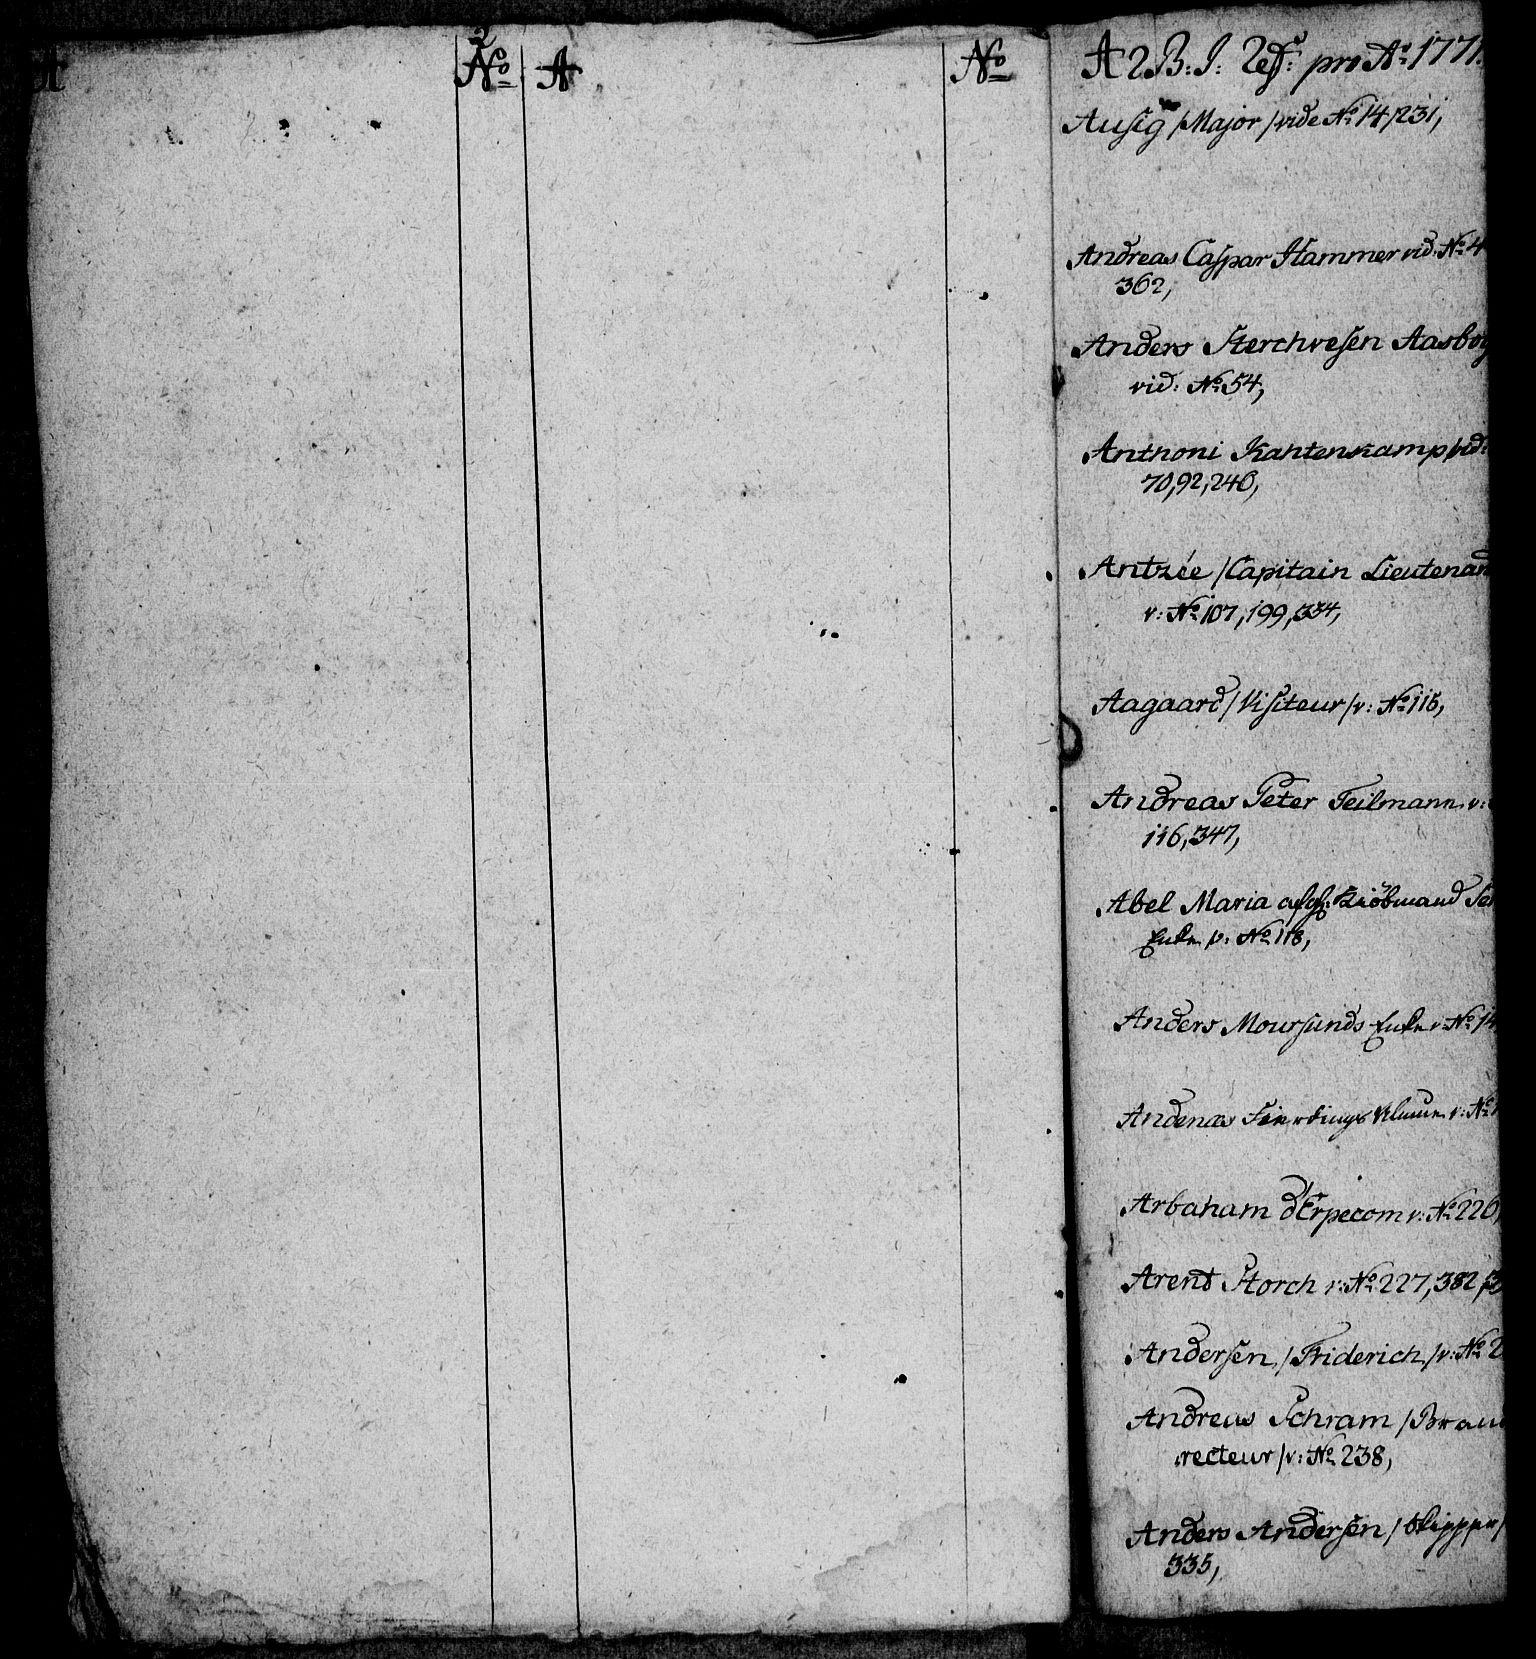 A
No
A
No
A 2 B: I: pro Ao 1771.
Ausig /Major/ vide No 14, 231,
Andreas Caspar Hammer vid: No 4
362,
Anders Sterchvesen Aasbo
vid: No 54,
Anthoni Kahtenskamp vid:
70, 92, 246,
Antzée /Capitain Lieutenan
v: No 107, 199, 334,
Aagaard /Visiteur/ v: No 115,
Andreas Peter Teilmann v:
116, 347,
Abel Maria afg: Kiöbmand
Enke v: No 118,
Anders Moursunds Enke v: No 14
Andenæs Fierdings v: No
Arbaham d'Erpecom v: No 226,
Arent Storch v: No 227, 382, 3
Andersen, /Friderich/ v: No 2
Andreas Schram /Brand
recteur/ v: No 238,
Anders Andersen /Skipper/
335,